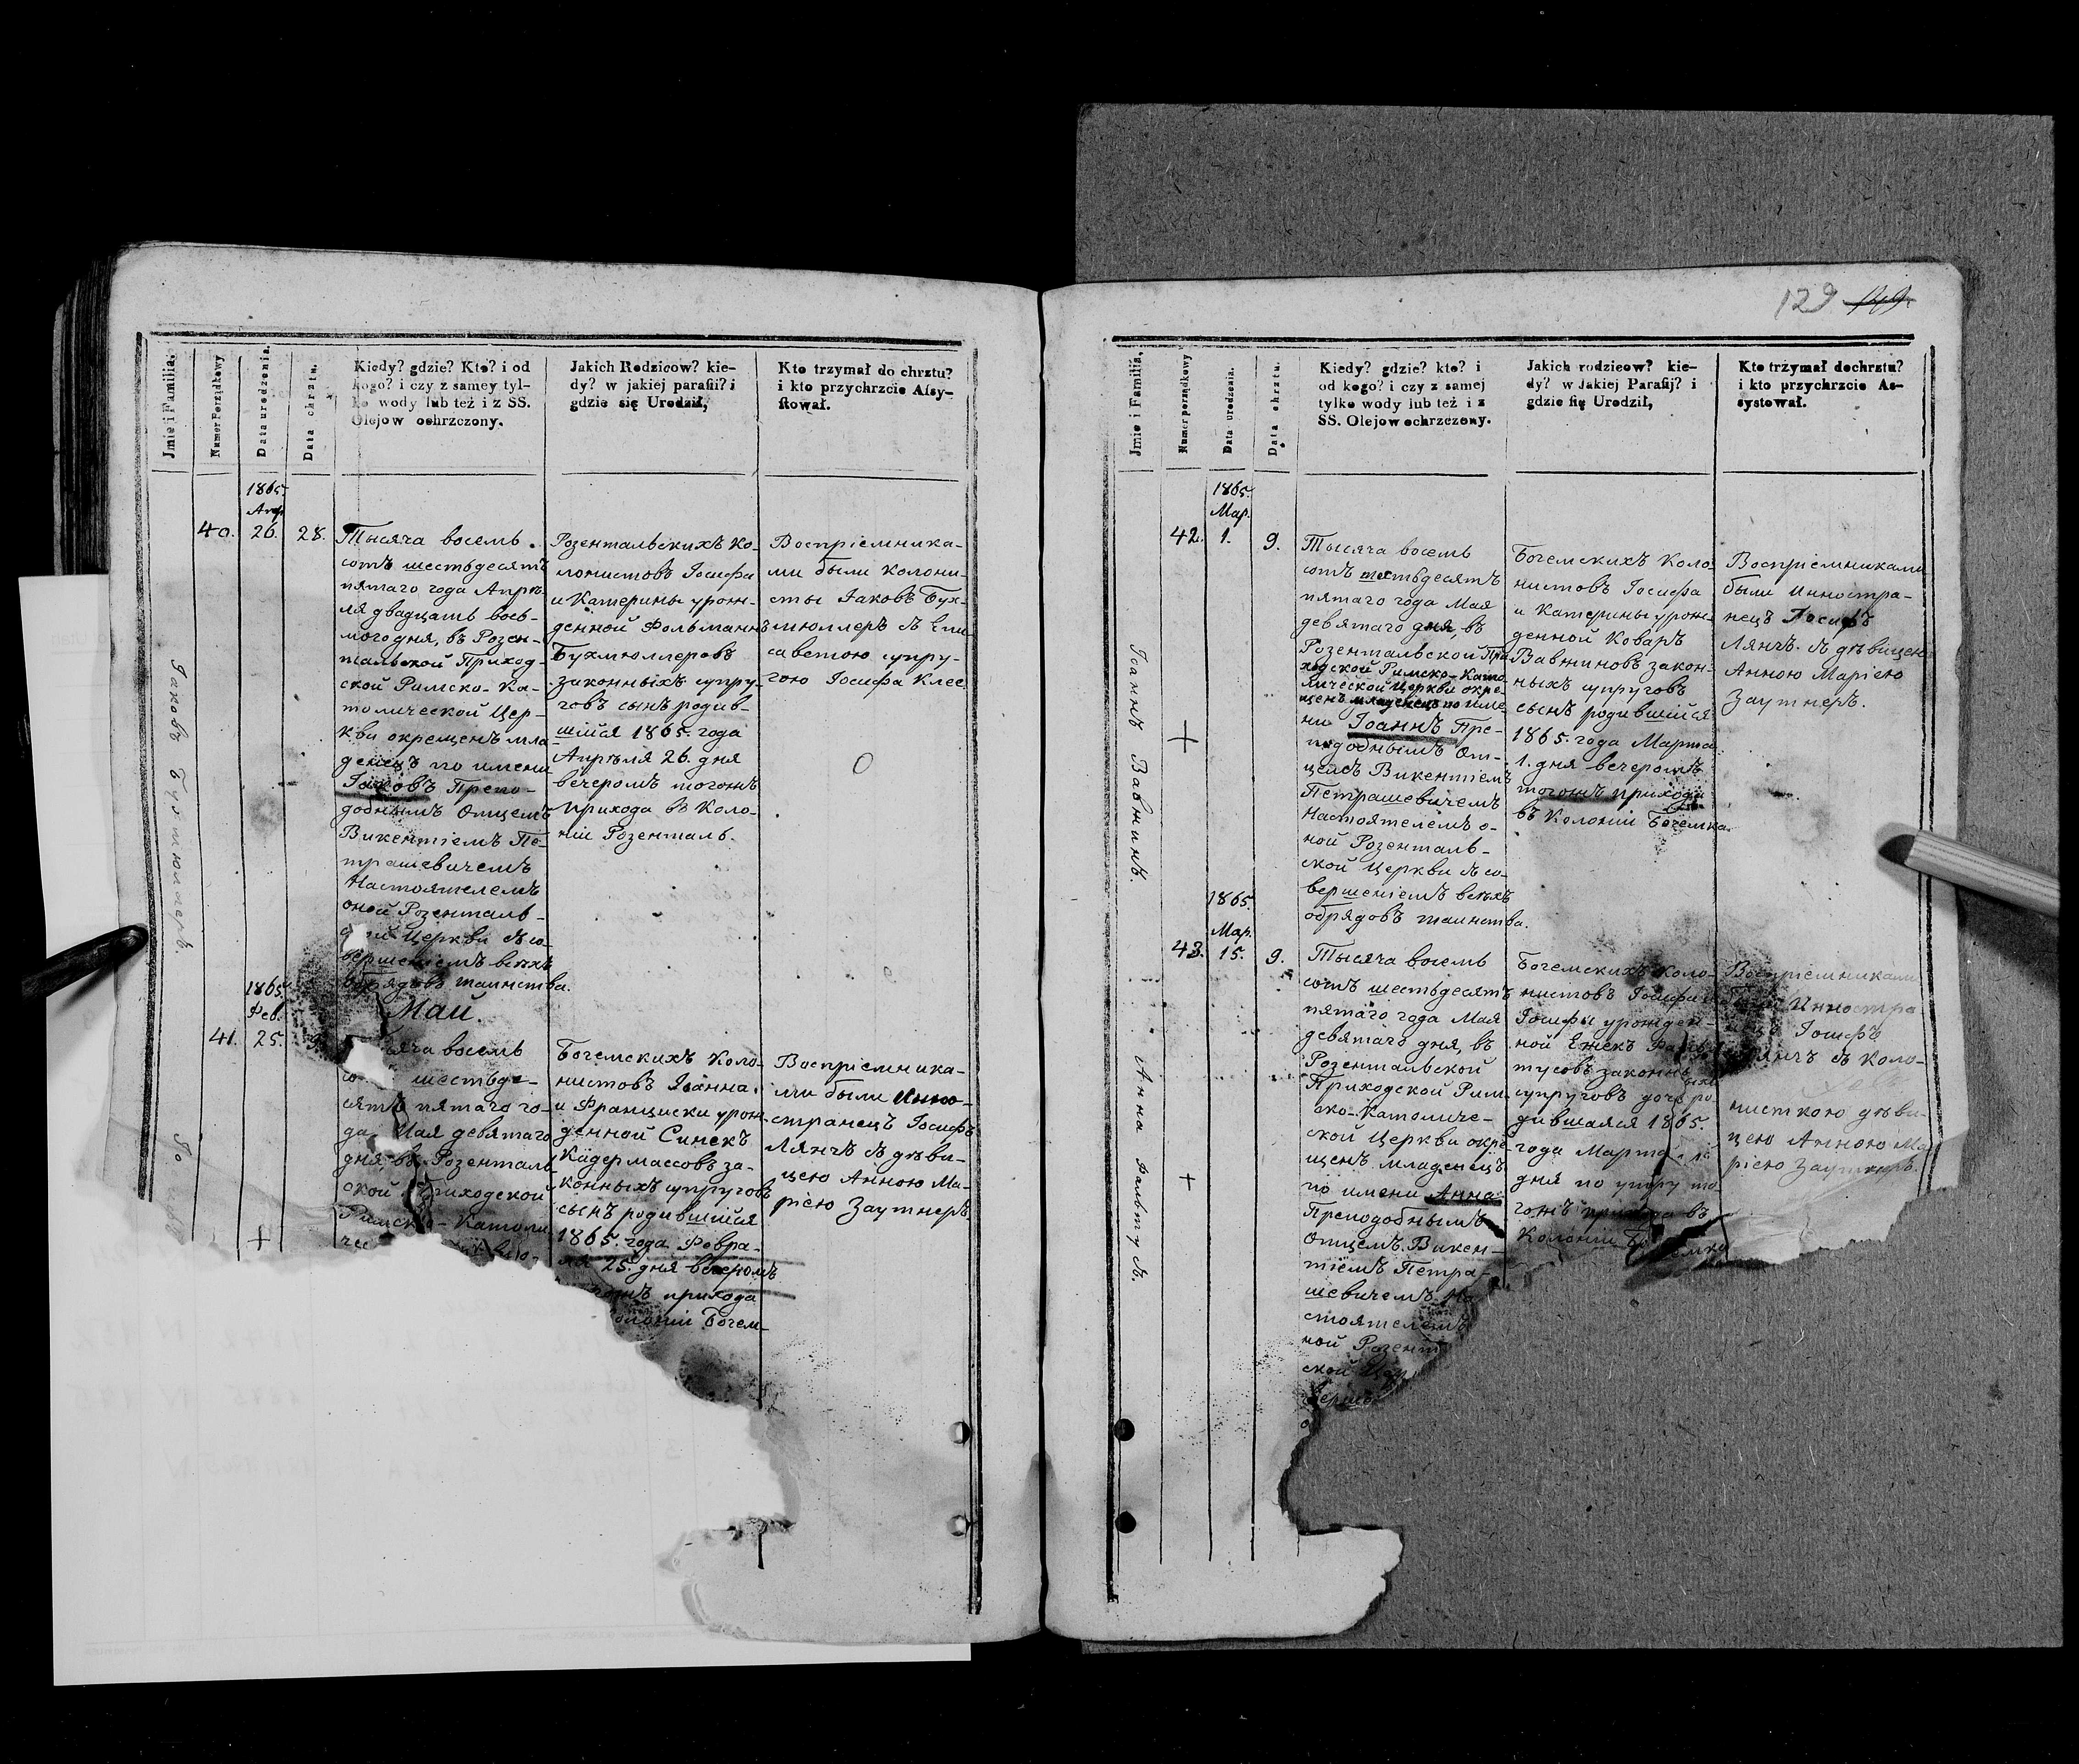 129 149.
Jmie i Familia,
Numer Porządkowy
Data urodzenia.
Data chrztu.
Kiedy? gdzie? Kto? i od
kogo? i czy z samey tyl-
ko wody lub też i z SS.
Olejow ochrzczony.
Jakich Rodzicow? kie-
dy? w jakiej parafii? i
gdzie się Urodził,
Kto trzymał do chrztu?
i kto przychrzcie Assy-
stował.
Яковъ Бухмюллеръ.
1865.
Апр.
40. 26. 28.
Тысяча восемь
сотъ шестьдесятъ
пятаго года Апрѣ-
ля двадцать вось-
мого дня, въ Розен-
тальской Приход-
ской Римско-Ка-
толической Цер-
кви окрещенъ мла
денецъ по имени
Іаковъ Препо-
добнымъ Отцемъ
Викентіемъ Пе-
трашевичемъ
Настоятелемъ
оной Розенталь-
Церкви съ со-
вершеніемъ всѣхъ
обрядовъ таинства.
Розентальскихъ Ко-
лонистовъ Іосифа
и Катерины урож-
денной Фольманнъ
Бухмюллеровъ
законныхъ супру-
говъ сынъ родив-
шійся 1865. года
Апрѣля 26. дня
вечеромъ тогожъ
прихода въ Коло-
ніи Розенталь.
Воспріемника-
ми были колони-
сты Іаковъ Бух-
мюллеръ съ Ели
саветою супру-
гою Іосифа Клес.
Май.
1865.
Фев.
41. 25.
восемь
шестьде-
сятъ пятаго го-
да Мая девятаго
дня, въ Розенталь
ской Приходской
Римско-Католи
Богемскихъ Коло-
нистовъ Іоанна
и Франциски урож-
денной Синекъ
Кадермассовъ за-
конныхъ супруговъ
сынъ родившійся
1865. года Февра-
ля 25. дня вечеромъ
тогожъ прихода
Богем-
Воспріемника-
ми были Инно-
странецъ Іосифъ
Лянчъ съ дѣви-
цею Анною Ма-
ріею Заутнеръ.
Jmie i Familia,
Numer porządkowy
Data urodzenia.
Data chrztu.
Kiedy? gdzie? kto? i
od kogo? i czy z samej
tylko wody lub też i z
SS. Olejow ochrzczony.
Jakich rodzicow? kie-
dy? w Jakiej Parafij? i
gdzie się Urodził,
Kto trzymał dochrztu?
i kto przychrzcie As-
systował.
Іоаннъ Вавнинъ.
1865.
Мар.
42. 1. 9.
Тысяча восемь
сотъ шестьдесятъ
пятаго года Мая
девятаго дня, въ
Розентальской При
ходской Римско-Като
лической Церкви окре-
щенъ младенецъ по име-
ни Іоаннъ Пре-
подобнымъ От-
цемъ Викентіемъ
Петрашевичемъ
Настоятелемъ о-
ной Розенталь-
ской Церкви съ со-
вершеніемъ всѣхъ
обрядовъ таинства.
Богемскихъ Коло-
нистовъ Іосифа
и Катерины урож-
денной Коваръ
Вавниновъ закон-
ныхъ супруговъ
сынъ родившійся
1865. года Марта
1. дня вечеромъ
тогожъ прихода
въ Колоніи Богемка.
Воспріемниками
были Инностра-
нецъ Іосифъ
Лянчъ съ дѣвицею
Анною Маріею
Заутнеръ.
Анна Фальтусъ.
1865.
Мар.
43. 15. 9.
Тысяча восемь
сотъ шестьдесятъ
пятаго года Мая
девятаго дня, въ
Розентальской
Приходской Рим
ско-Католиче-
ской Церкви окре
щенъ младенецъ
по имени Анна
Преподобнымъ
Отцемъ Викен-
тіемъ Петра-
шевичемъ На
стоятелемъ
ной Розент
ской Цер
верше
Богемскихъ Коло-
нистовъ Іосифа и
Іосифы урожден-
ной Ежекъ Фаль-
тусовъ законныхъ
супруговъ дочь ро-
дившаяся 1865.
года Марта
дня по утру то
гожъ прихода въ
Колоніи Богемка
Воспріемниками
были Инностра
нецъ Іосифъ
Лянчъ съ Коло-
нисткою дѣви-
цею Анною Ма
ріею Заутнеръ.